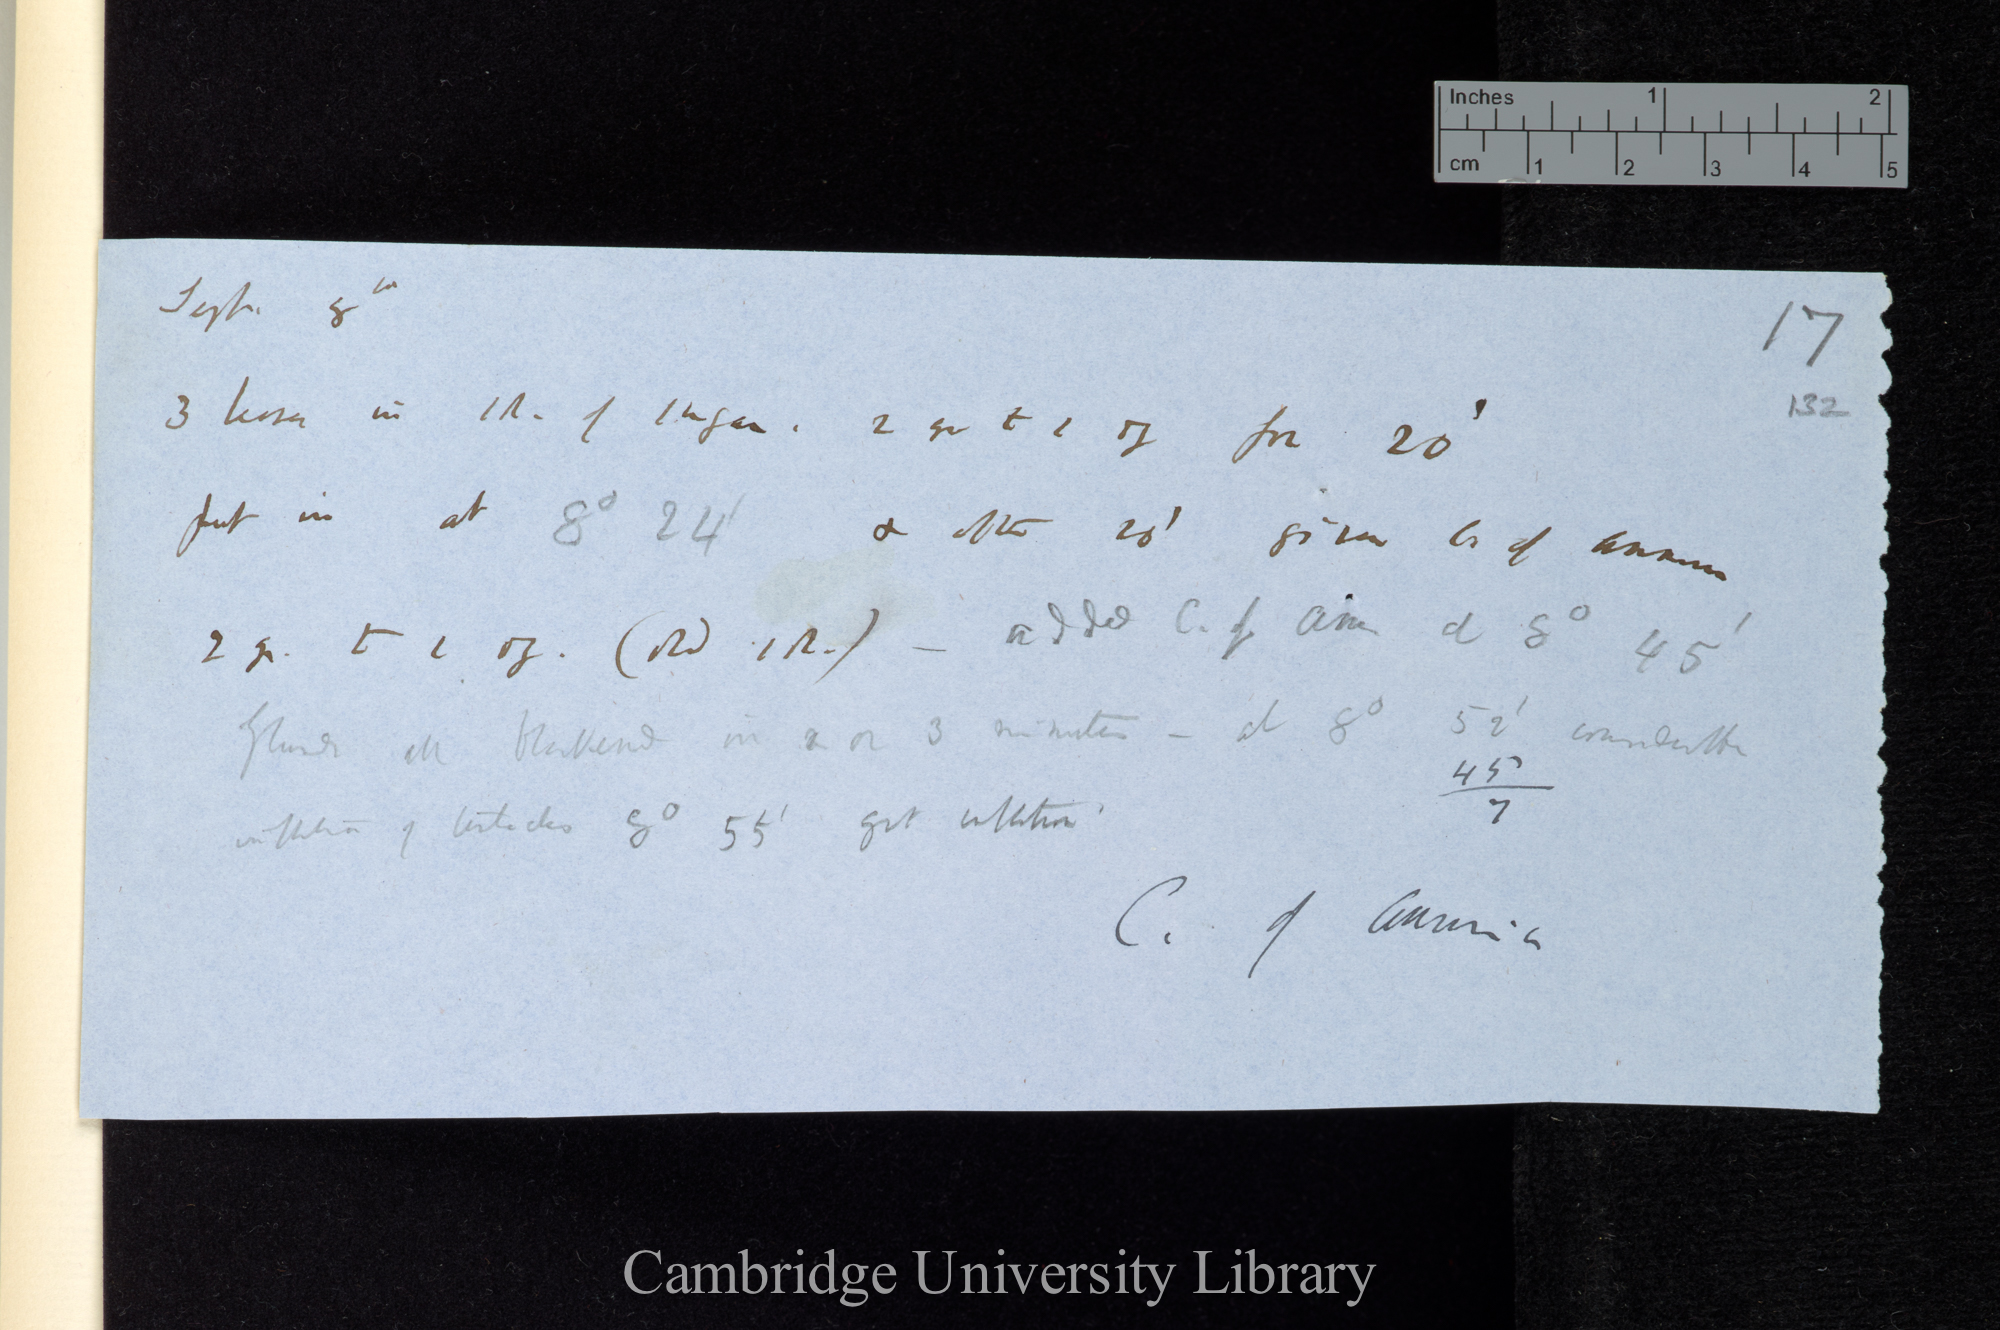 Inches 1 2
cm 1 2 3 4 5
Sept. 8th
17
132
3 leaves in sol. of sugar. 2 gr to 1 oz for 20'
put in at 8° 24' & after 20' given C. of ammonia
2 gr. to 1 oz. (old sol.) — added C. of Am at 8° 45'
Glands all blackened in 2 or 3 minutes — at 8° 52' considerable
45
7
inflection of tentacles 8° 55' great inflection
C. of Ammonia
Cambridge University Library